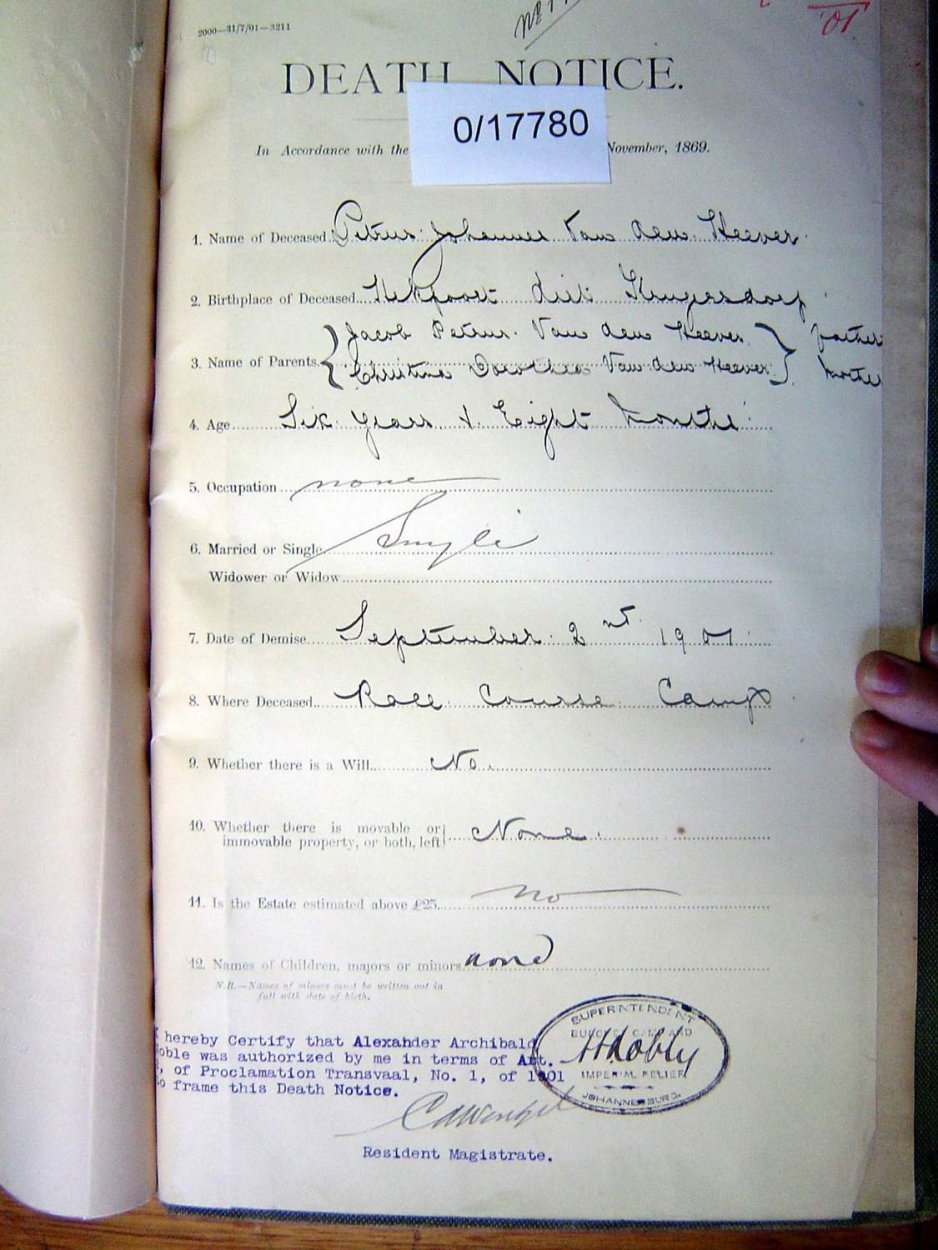 2000—31/7/01—3211
'01
DEATH NOTICE.
0/17780
In Accordance with the November, 1869.
1. Name of Deceased Petrus Johannes Van den Heever
2. Birthplace of Deceased Hekpoort dist Krugersdorp
Jacob Petrus Van den Heever father
3. Name of Parents
Christina Dorothea Van den Heever mother
4. Age Six years & Eight months
5. Occupation none
6. Married or Single Single
Widower or Widow
7. Date of Demise September 2nd 1901
8. Where Deceased Race Course Camp
9. Whether there is a Will No.
10. Whether there is movable or
immovable property, or both, left None
11. Is the Estate estimated above £25 no
12. Names of Children, majors or minors none
N.B.—Names of minors must be written out in
full with date of birth.
hereby Certify that Alexander Archibald
oble was authorized by me in terms of Art.
, of Proclamation Transvaal, No. 1, of 1901
o frame this Death Notice.
SUPERINTENDENT
BURGHER CAMP AND
IMPERIAL RELIEF
JOHANNESBURG.
Resident Magistrate.